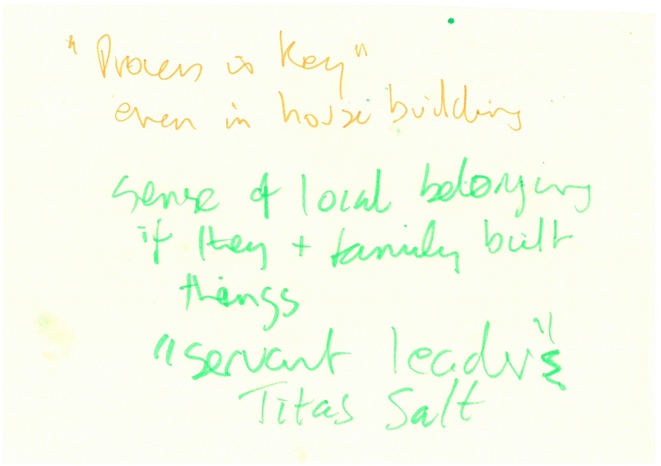 "Process is Key"
even in house building
sense of local belonging
if they + family built
things
"servant leader"
Titas Salt